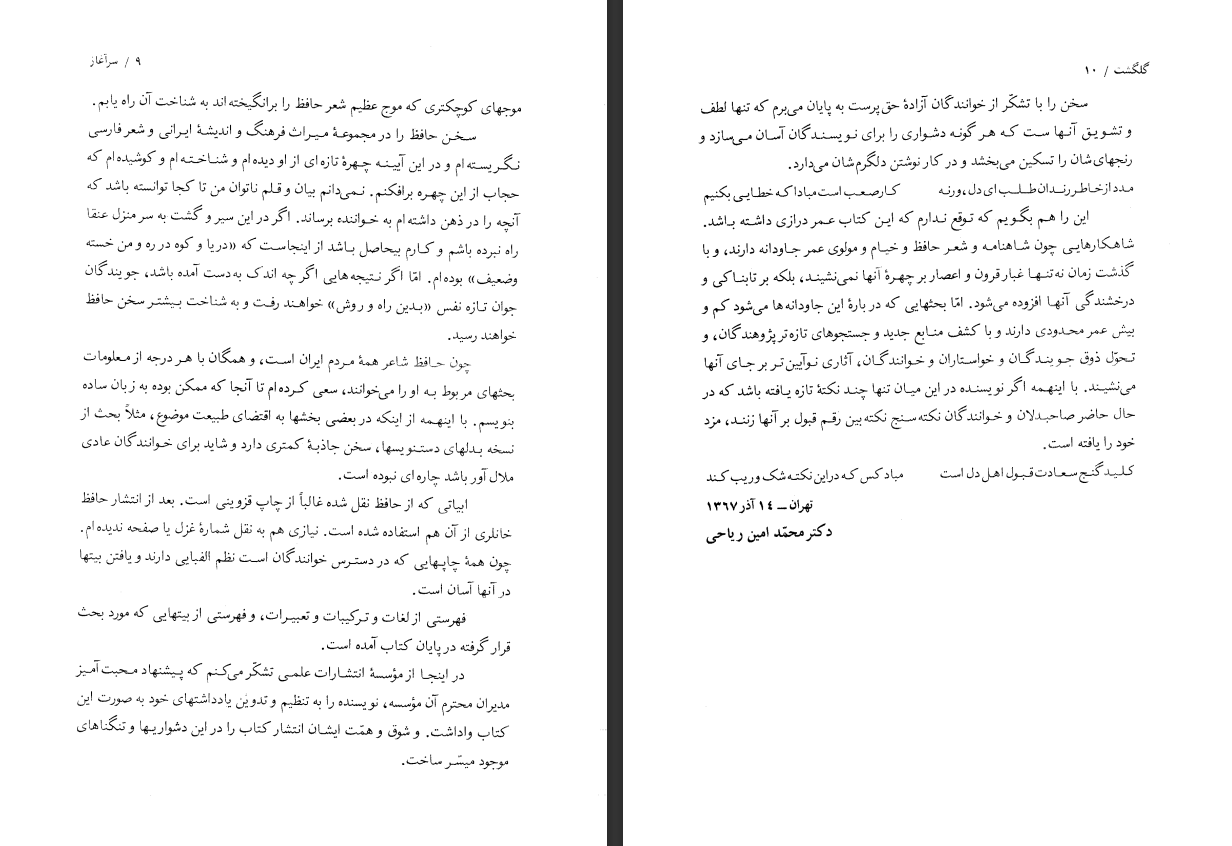 ۹ / سرآغاز
موجهای کوچکتری که موج عظیم شعر حافظ را برانگیخته‌اند به شناخت آن راه یابم.
سخن حافظ را در مجموعهٔ میراث فرهنگ و اندیشهٔ ایرانی و شعر فارسی
نگریسته‌ام و در این آیینه چهرهٔ تازه‌ای از او دیده‌ام و شناخته‌ام و کوشیده‌ام که
حجاب از این چهره برافکنم. نمی‌دانم بیان و قلم ناتوان من تا کجا توانسته باشد که
آنچه را در ذهن داشته‌ام به خواننده برساند. اگر در این سیر و گشت به سر منزل عنقا
راه نبرده باشم و کارم بیحاصل باشد از اینجاست که «دریا و کوه در ره و من خسته
وضعیف» بوده‌ام. امّا اگر نتیجه‌هایی اگر چه اندک به‌دست آمده باشد، جویندگان
جوان تازه نفس «بدین راه و روش» خواهند رفت و به شناخت بیشتر سخن حافظ
خواهند رسید.
چون حافظ شاعر همهٔ مردم ایران است، و همگان با هر درجه از معلومات
بحثهای مربوط به او را می‌خوانند، سعی کرده‌ام تا آنجا که ممکن بوده به زبان ساده
بنویسم. با اینهمه از اینکه در بعضی بخشها به اقتضای طبیعت موضوع، مثلاً بحث از
نسخه بدلهای دستنویسها، سخن جاذبهٔ کمتری دارد و شاید برای خوانندگان عادی
ملال آور باشد چاره‌ای نبوده است.
ابیاتی که از حافظ نقل شده غالباً از چاپ قزوینی است. بعد از انتشار حافظ
خانلری از آن هم استفاده شده است. نیازی هم به نقل شمارهٔ غزل یا صفحه ندیده‌ام.
چون همهٔ چاپهایی که در دسترس خوانندگان است نظم الفبایی دارند و یافتن بیتها
در آنها آسان است.
فهرستی از لغات و ترکیبات و تعبیرات، و فهرستی از بیتهایی که مورد بحث
قرار گرفته در پایان کتاب آمده است.
در اینجا از مؤسسهٔ انتشارات علمی تشکّر می‌کنم که پیشنهاد محبت آمیز
مدیران محترم آن مؤسسه، نویسنده را به تنظیم و تدوین یادداشتهای خود به صورت این
کتاب واداشت. و شوق و همّت ایشان انتشار کتاب را در این دشواریها و تنگناهای
موجود میسّر ساخت.
گلگشت / ۱۰
سخن را با تشکّر از خوانندگان آزادهٔ حق پرست به پایان می‌برم که تنها لطف
و تشویق آنها ست که هر گونه دشواری را برای نویسندگان آسان می‌سازد و
رنجهای‌شان را تسکین می‌بخشد و در کار نوشتن دلگرم‌شان می‌دارد.
مدد از خاطر رندان طلب ای دل، ورنه کار صعب است مبادا که خطایی بکنیم
این را هم بگویم که توقع ندارم که این کتاب عمر درازی داشته باشد.
شاهکارهایی چون شاهنامه و شعر حافظ و خیام و مولوی عمر جاودانه دارند، و با
گذشت زمان نه‌تنها غبار قرون و اعصار بر چهرهٔ آنها نمی‌نشیند، بلکه بر تابناکی و
درخشندگی آنها افزوده می‌شود. امّا بحثهایی که در بارهٔ این جاودانه‌ها می‌شود کم و
بیش عمر محدودی دارند و با کشف منابع جدید و جستجوهای تازه‌تر پژوهندگان، و
تحوّل ذوق جویندگان و خواستاران و خوانندگان، آثاری نوآیین‌تر بر جای آنها
می‌نشیند. با اینهمه اگر نویسنده در این میان تنها چند نکتهٔ تازه یافته باشد که در
حال حاضر صاحبدلان و خوانندگان نکته‌سنج نکته‌بین رقم قبول بر آنها زنند، مزد
خود را یافته است.
کلید گنج سعادت قبول اهل دل است مباد کس که در این نکته شک و ریب کند
تهران ــ ۱۴ آذر ۱۳۶۷
دکتر محمّد امین ریاحی